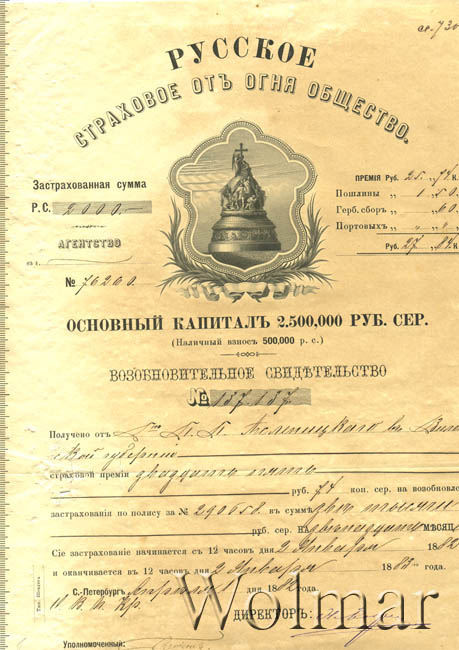 РУССКОЕ
СТРАХОВОЕ ОТЪ ОГНЯ ОБЩЕСТВО.
Застрахованная сумма
Р.С. 2000.-
АГЕНТСТВО
№ 76200.
ПРЕМІЯ Руб. 25 „ 74 К.
Пошлины „ 1 „ 50
Герб. сборъ „ „ 60
Портовыхъ „ „
Руб. 27 „ 84 К.
ОСНОВНЫЙ КАПИТАЛЪ 2.500,000 РУБ. СЕР.
(Наличный взносъ 500,000 р. с.)
ВОЗОБНОВИТЕЛЬНОЕ СВИДѢТЕЛЬСТВО
№ 137.137
Получено отъ
губерніи
страховой преміи двадцать пять
руб. 74 коп. сер. на возобновле
застрахованія по полису за № 290658 въ суммѣ двѣ тысячи
руб. сер. на двѣнадцать МѢСЯЦ
Сіе застрахованіе начинается съ 12 часовъ дня 2 Января 1882
и оканчивается въ 12 часовъ дня 2 Января 1883 года.
С.-Петербургъ дня 1882 года.
ДИРЕКТОРЪ:
Уполномоченный:
Wolmar